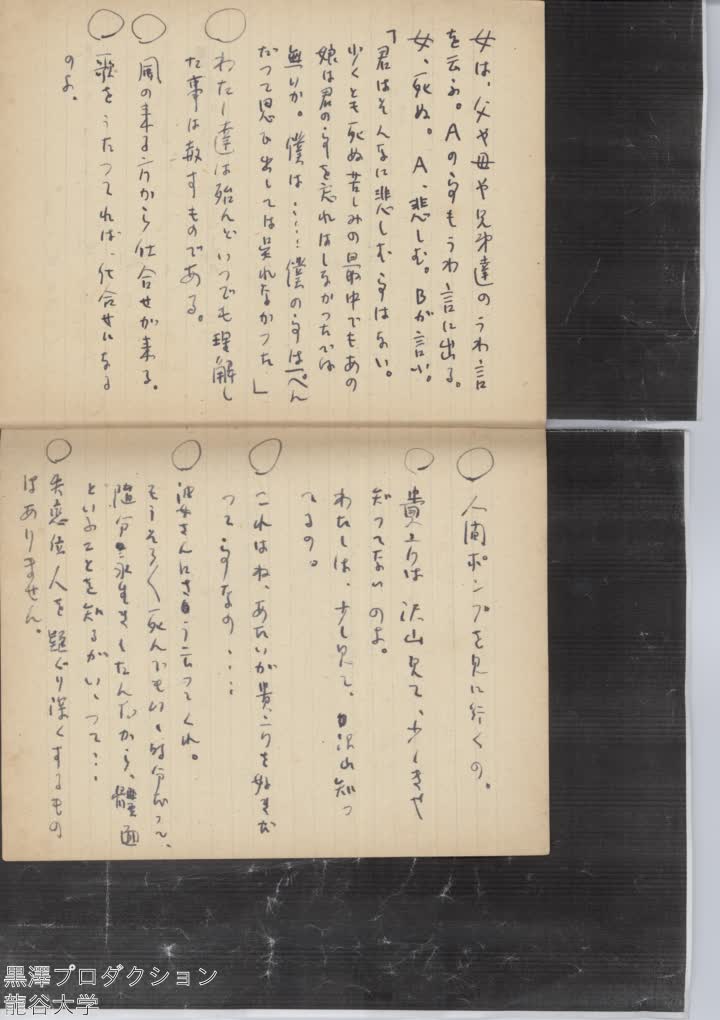 女は、父や母や兄弟達のうわ言
を云ふ。Aの事もうわ言に出る。
女、死ぬ。A、悲しむ。Bが言ふ。
「君はそんなに悲しむ事はない。
少くとも死ぬ苦しみの最中でもあの
娘は君の事を忘れはしなかったでは
無いか。僕は‥‥僕の事は一ぺん
だって思ひ出しては呉れなかった」
○ わたし達は殆んどいつでも理解し
た事は赦すものである。
○ 風の来る方から仕合せが来る。
○ 歌をうたってれば、仕合せになる
のよ。
○ 人間ポンプを見に行くの。
○ 貴方は沢山見て、少しきや
知ってないのよ。
わたしは、少し見て、沢山知っ
てるの。
○ これはね、あたいが貴方を好きだ
って事なの‥‥
○ 汝女さんにさう云ってくれ。
もうそろ〳〵死んでもいゝ時分だって、
随分永生きしたんだから、體面
といふことを知るがいゝって‥‥
○ 失恋位人を疑ぐり深くするもの
はありません。
黒澤プロダクション
龍谷大学